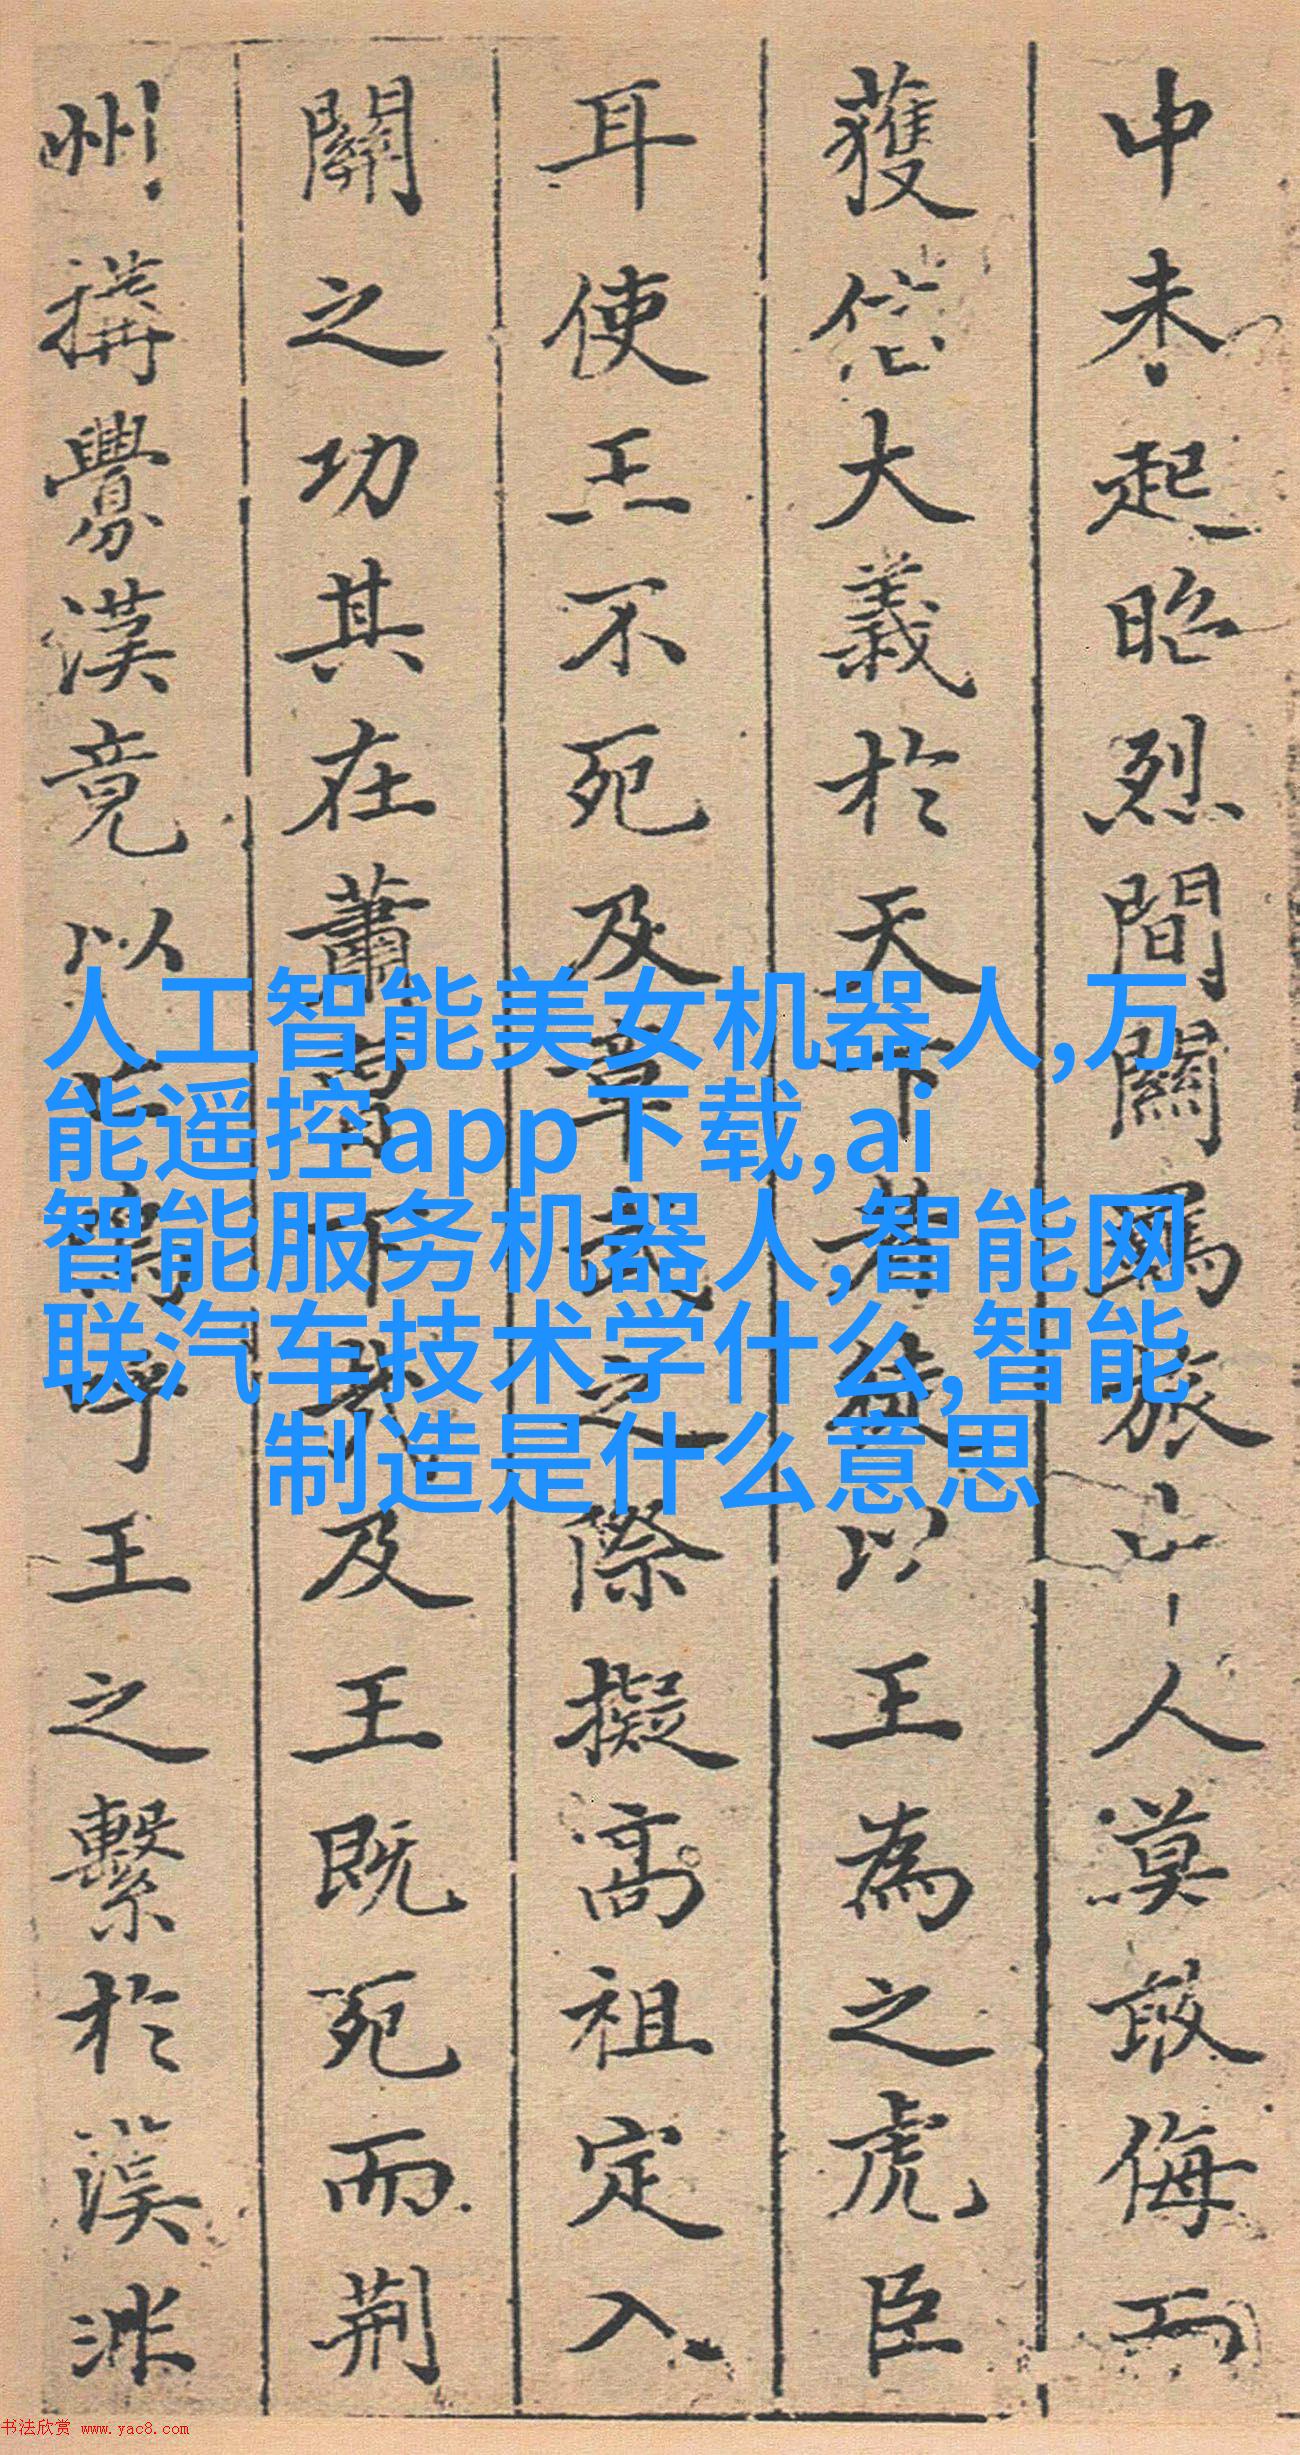 中未起昭烈間關羈旅人莫敢侮而
獲信大義於天下者徒以王為之虎臣
耳使王不死及章武之際擬高祖定入
關之功其在蕭曹下哉及王既死而荊
州搆釁漢竟以亡嗚呼王之繫於漢
人工智能美女机器人,万
能遥控app下载,ai
智能服务机器人,智能网
联汽车技术学什么,智能
制造是什么意思
书法欣赏 www.yac8.com